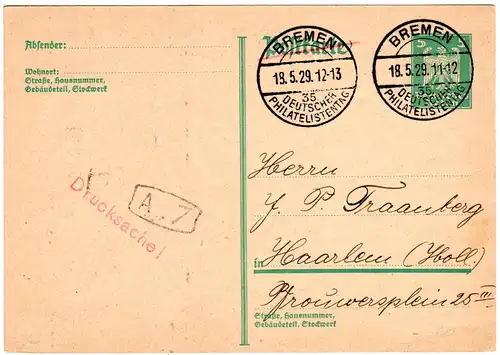 Absender:
Wohnort:
Straße, Hausnummer,
Gebäudeteil, Stockwerk
Drucksache!
A. 7
Postkarte
BREMEN
18.5.29.12-13
35.
DEUTSCHER
PHILATELISTENTAG
BREMEN
18.5.29.11-12
35.
DEUTSCHER
PHILATELISTENTAG
Herrn
J. P. Traanberg
in Haarlem (Holl)
Prouwersplein 25 III
Straße, Hausnummer,
Gebäudeteil, Stockwerk